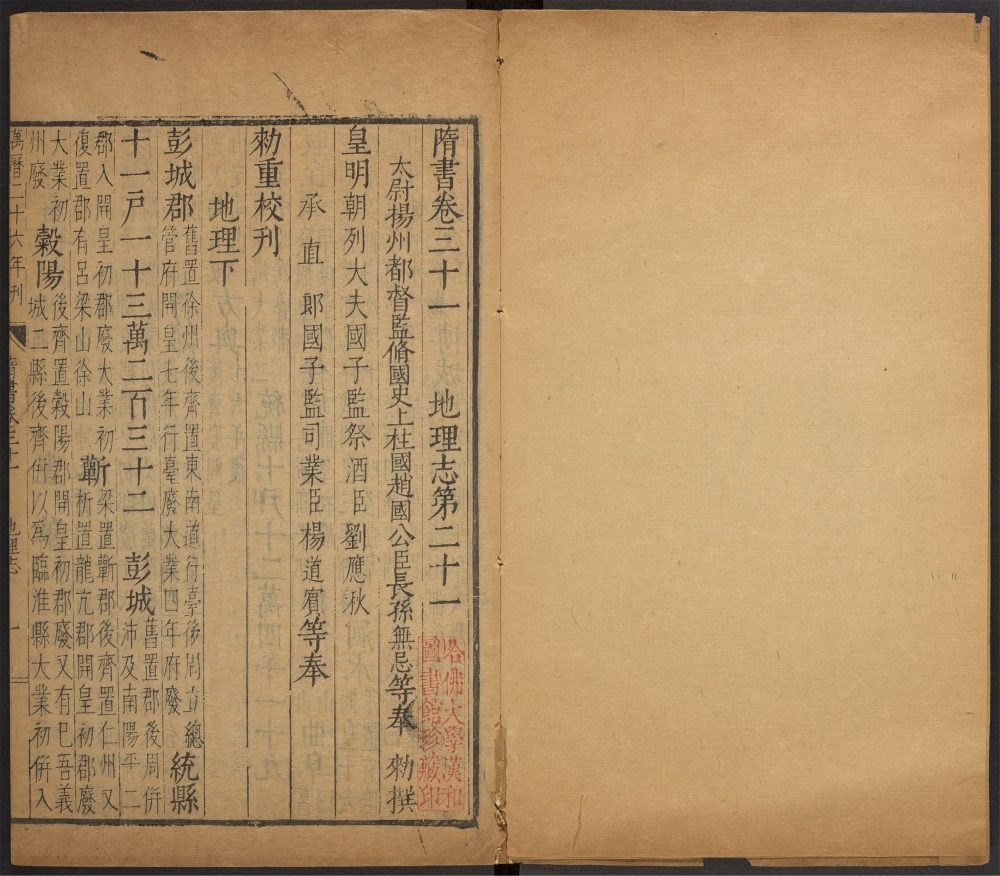 隋書卷三十一 地理志第二十一
太尉揚州都督監脩國史上柱國趙國公臣長孫無忌等奉 勑撰
皇明朝列大夫國子監祭酒臣劉應秋
承直郞國子監司業臣楊道賓等奉
勑重校刊
地理下
彭城郡 舊置徐州後齊置東南道行臺後周立總
管府開皇七年行臺廢大業四年府廢 統縣
十一戸一十三萬二百三十二 彭城 舊置郡後周併
沛及南陽平二
郡入開皇初郡廢大業初
復置郡有呂梁山徐山 蘄 梁置蘄郡後齊置仁州又
析置龍亢郡開皇初郡廢
大業初
州廢 穀陽 後齊置穀陽郡開皇初郡廢又有巳吾義
城二縣後齊併以爲臨淮縣大業初併入
萬曆二十六年刊
隋書卷三十一 地理志 一
哈佛大學漢和
圖書館珍藏印